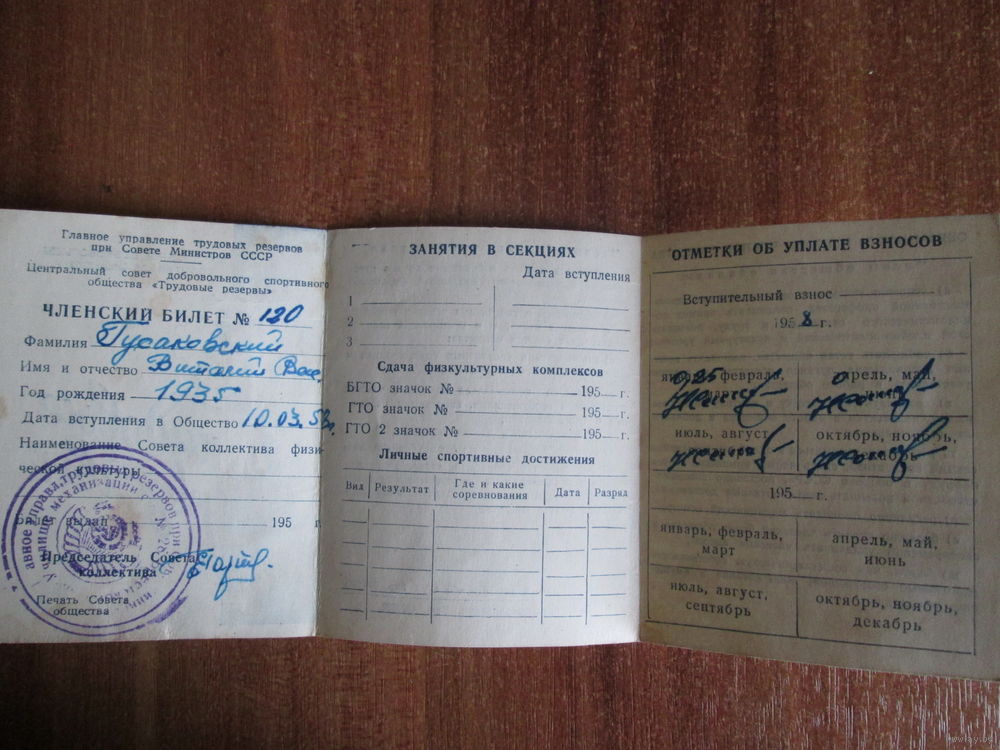 Главное управление трудовых резервов
при Совете Министров СССР
Центральный совет добровольного спортивного
общества «Трудовые резервы»
ЧЛЕНСКИЙ БИЛЕТ № 120
Фамилия Гусаковский
Имя и отчество Виталий Вас.
Год рождения 1935
Дата вступления в Общество 10.03.58г.
Наименование Совета коллектива физи-
ческой культуры
Билет выдан 195 г.
Председатель Совета
коллектива
Печать Совета
общества
ЗАНЯТИЯ В СЕКЦИЯХ
Дата вступления
1
2
3
Сдача физкультурных комплексов
БГТО значок № 195 г.
ГТО значок № 195 г.
ГТО 2 значок № 195 г.
Личные спортивные достижения
Вид Результат Где и какие соревнования Дата Разряд
ОТМЕТКИ ОБ УПЛАТЕ ВЗНОСОВ
Вступительный взнос
1958 г.
январь, февраль,
апрель, май,
июль, август,
октябрь, ноябрь,
декабрь
195 г.
январь, февраль,
март
апрель, май,
июнь
июль, август,
сентябрь
октябрь, ноябрь,
декабрь